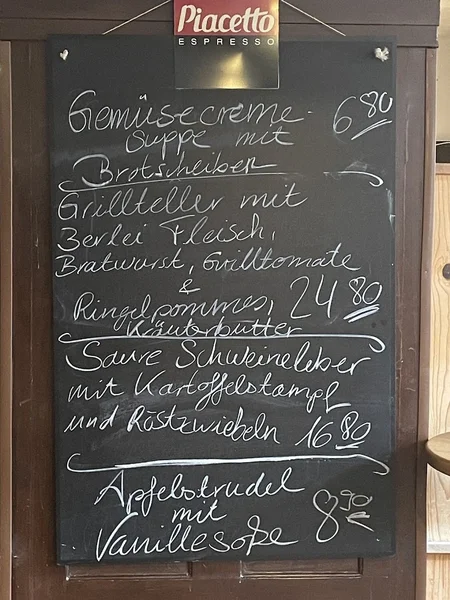 Piacetto
ESPRESSO
Gemüsecreme-
suppe mit 6 80
Brotscheiben
Grillteller mit
3erlei Fleisch,
Bratwurst, Grilltomate
&
Ringelpommes, 24 80
Kräuterbutter
Saure Schweineleber
mit Kartoffelstampf
und Röstzwiebeln 16 80
Apfelstrudel
mit
Vanillesoße 8 90